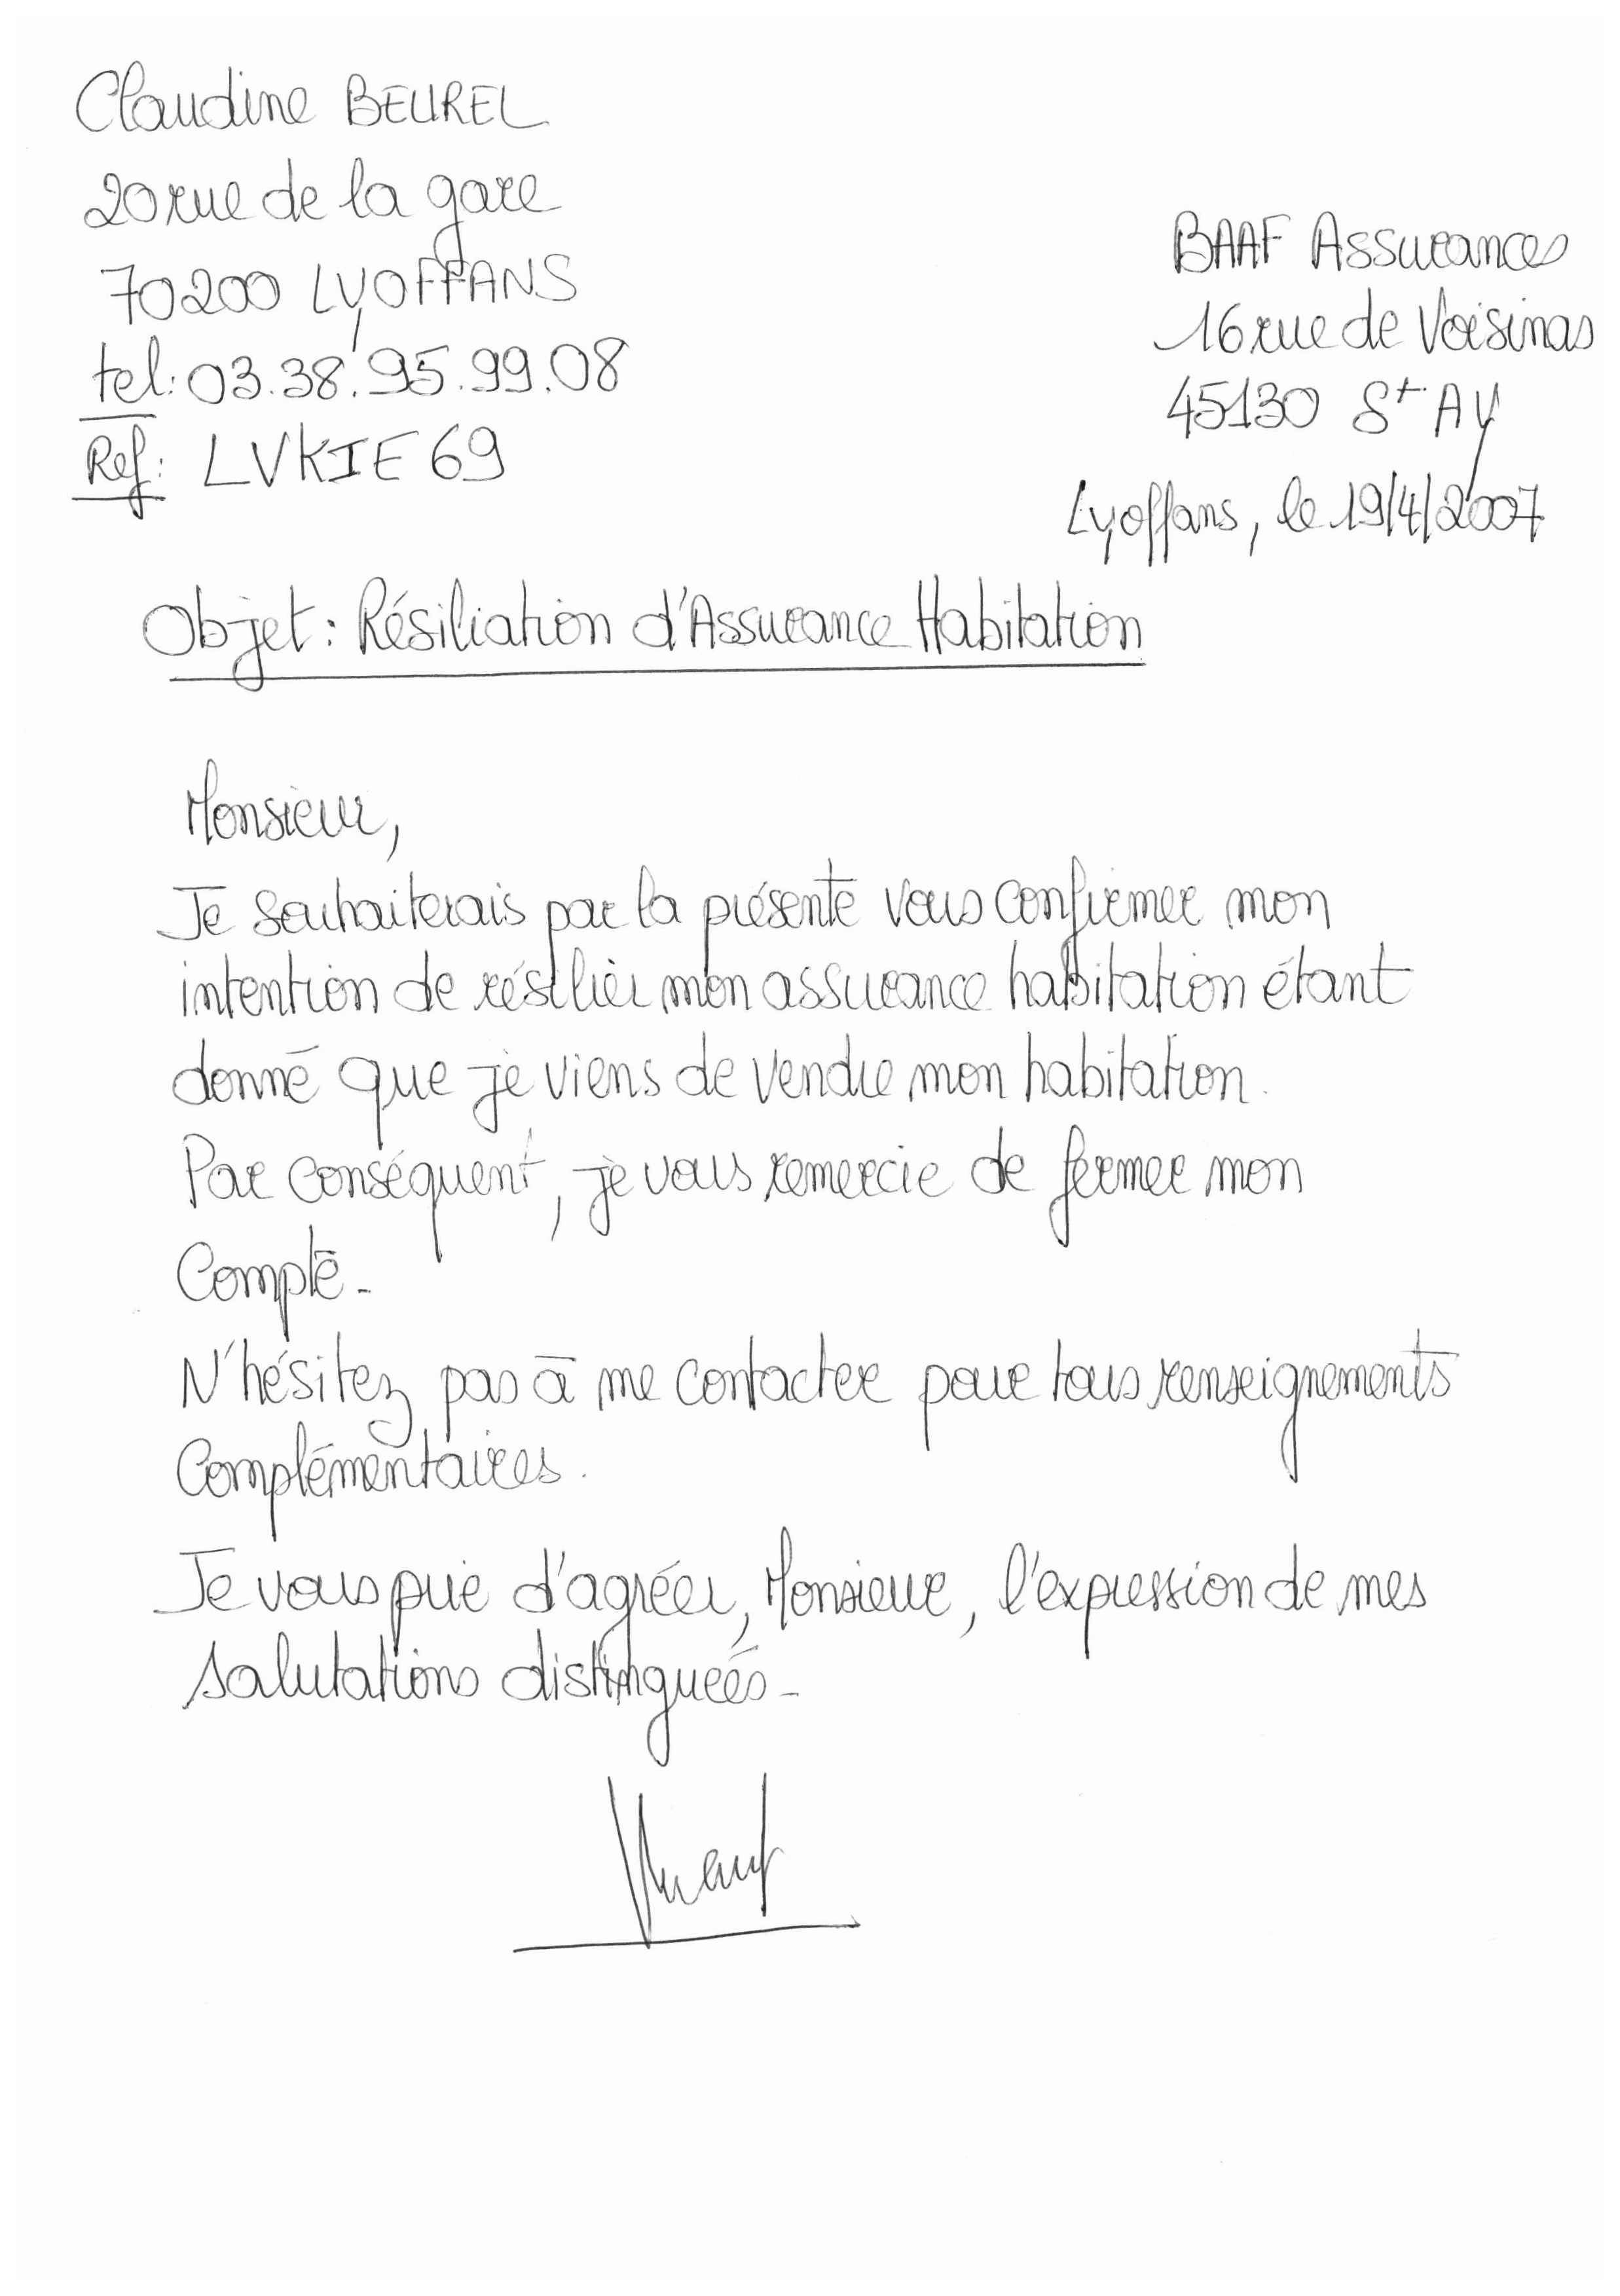 Claudine BEUREL
20 rue de la gare
70200 LYOFFANS
tel: 03.38.95.99.08
Ref: LVKIE69
BAAF Assurances
16 rue de Voisinas
45130 St AY
Lyoffans, le 19/4/2007
Objet: Résiliation d'Assurance Habitation
Monsieur,
Je souhaiterais par la présente vous confirmer mon
intention de résilier mon assurance habitation étant
donné que je viens de vendre mon habitation.
Par conséquent, je vous remercie de fermer mon
Compte.
N'hésitez pas à me contacter pour tous renseignements
Complémentaires.
Je vous prie d'agréer, Monsieur, l'expression de mes
salutations distinguées.